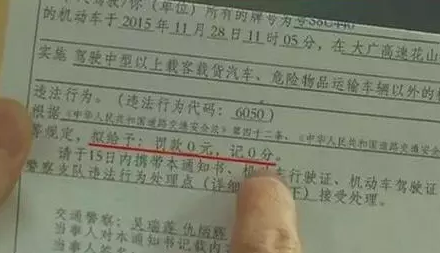 驾驶/你（单位）所有的牌号为
的机动车于 2015 年 11 月 28 日 11 时 05 分，在 大广高速花山
实施 驾驶中型以上载客载货汽车、危险物品运输车辆以外的
违法行为。（违法行为代码：6050）
根据《中华人民共和国道路交通安全法》第四十二条、《中华人民共和国道路交通安全法
等规定，拟给予：罚款 0 元，记 0 分。
请于15日内携带本通知书、机动车行驶证、机动车驾驶证
警察支队违法行为处理点（详细 下）接受处理。
交通警察：吴瑞莲
当事人对本通知书记载内